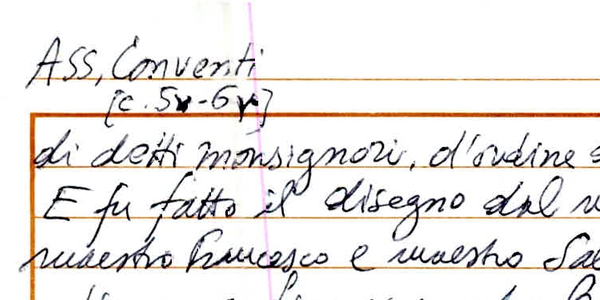 ASS, Conventi
[c. 5v-6v]
di detti monsignori, d'ordine
E fu fatto il disegno dal
maestro Francesco e maestro